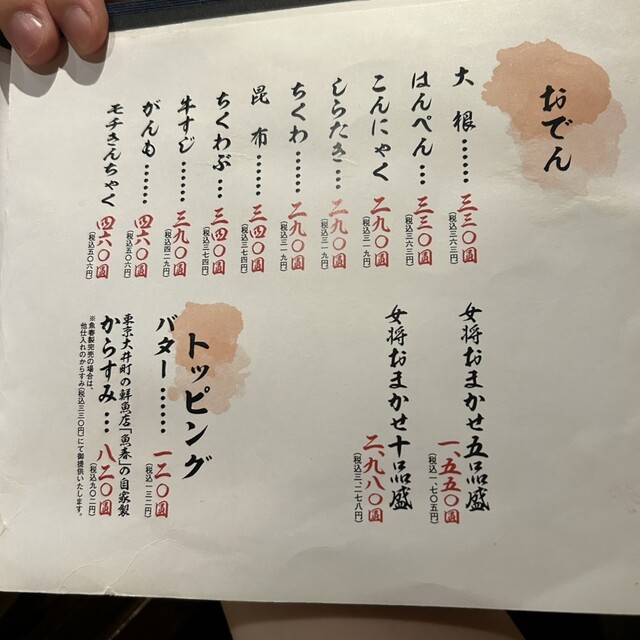 おでん
大根……三三〇圓
（税込三六三円）
はんぺん…三三〇圓
（税込三六三円）
こんにゃく 二九〇圓
（税込三一九円）
しらたき…二九〇圓
（税込三一九円）
ちくわ……二九〇圓
（税込三一九円）
昆布……三四〇圓
（税込三七四円）
ちくわぶ…三四〇圓
（税込三七四円）
牛すじ……三九〇圓
（税込四二九円）
がんも……四六〇圓
（税込五〇六円）
モチきんちゃく 四六〇圓
（税込五〇六円）
女将おまかせ五品盛
一、五五〇圓
（税込一、七〇五円）
女将おまかせ十品盛
二、九八〇圓
（税込三、二七八円）
トッピング
バター……一二〇圓
（税込一三二円）
東京大井町の鮮魚店「魚春」の自家製
からすみ…八二〇圓
（税込九〇二円）
※魚春製完売の場合は、
他仕入れのからすみ（税込三三〇円）にて御提供いたします。